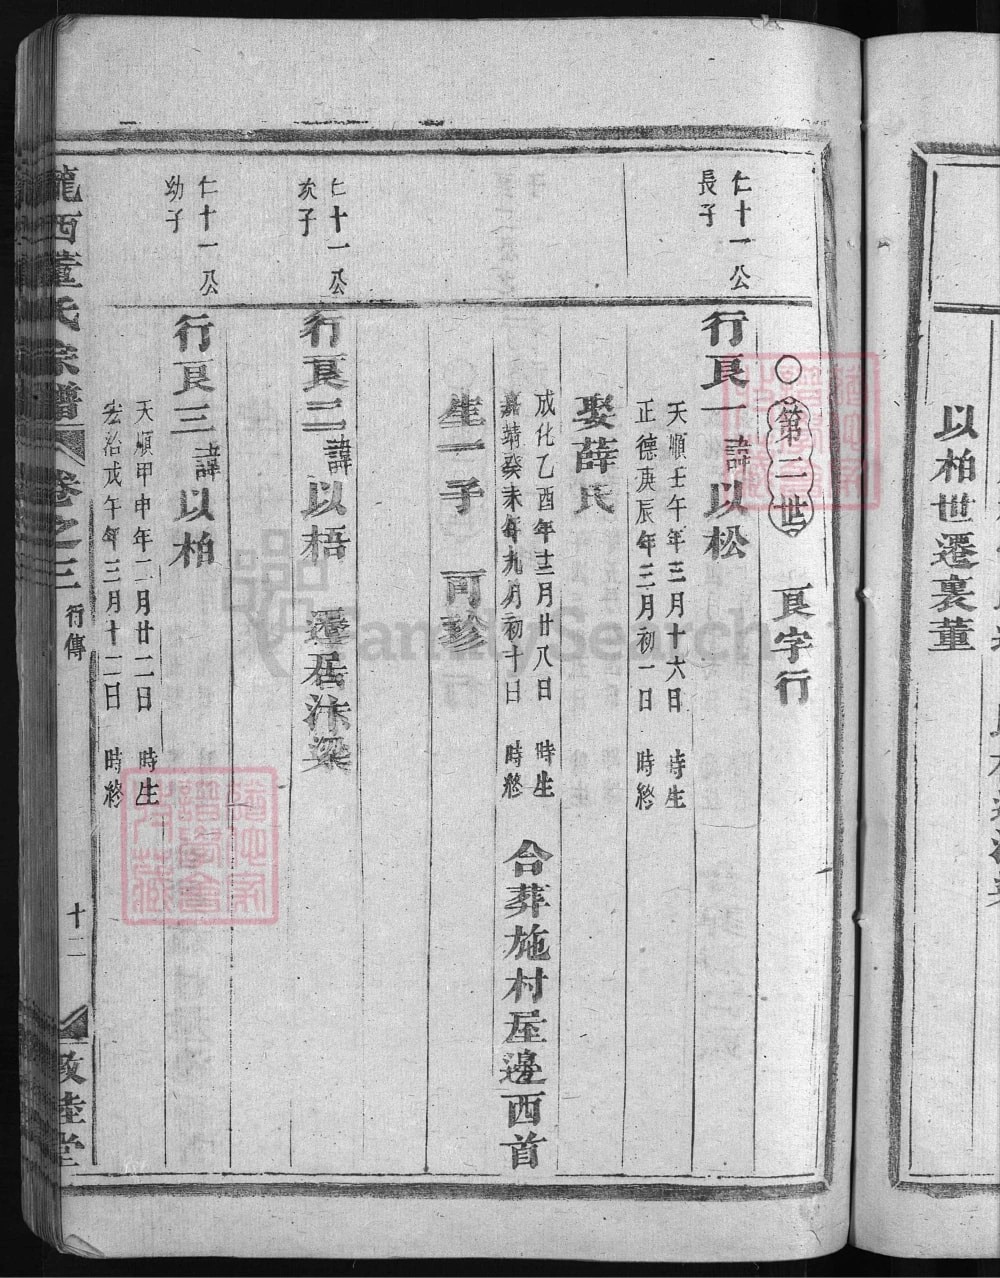 以柏世遷裏董
○第二世　良字行
仁十一公
長子
行良一諱以松
天順壬午年三月十六日　時生
正德庚辰年三月初一日　時終
娶薛氏
成化乙酉年十二月廿八日　時生
嘉靖癸未年九月初十日　時終
合葬施村屋邊西首
生一子　可珍
仁十一公
次子
行良二諱以梧　遷居汴梁
仁十一公
幼子
行良三諱以柏
天順甲申年二月廿二日　時生
宏治戊午年三月十二日　時終
隴西董氏宗譜　卷之三　行傳　十二　敦睦堂
FamilySearch